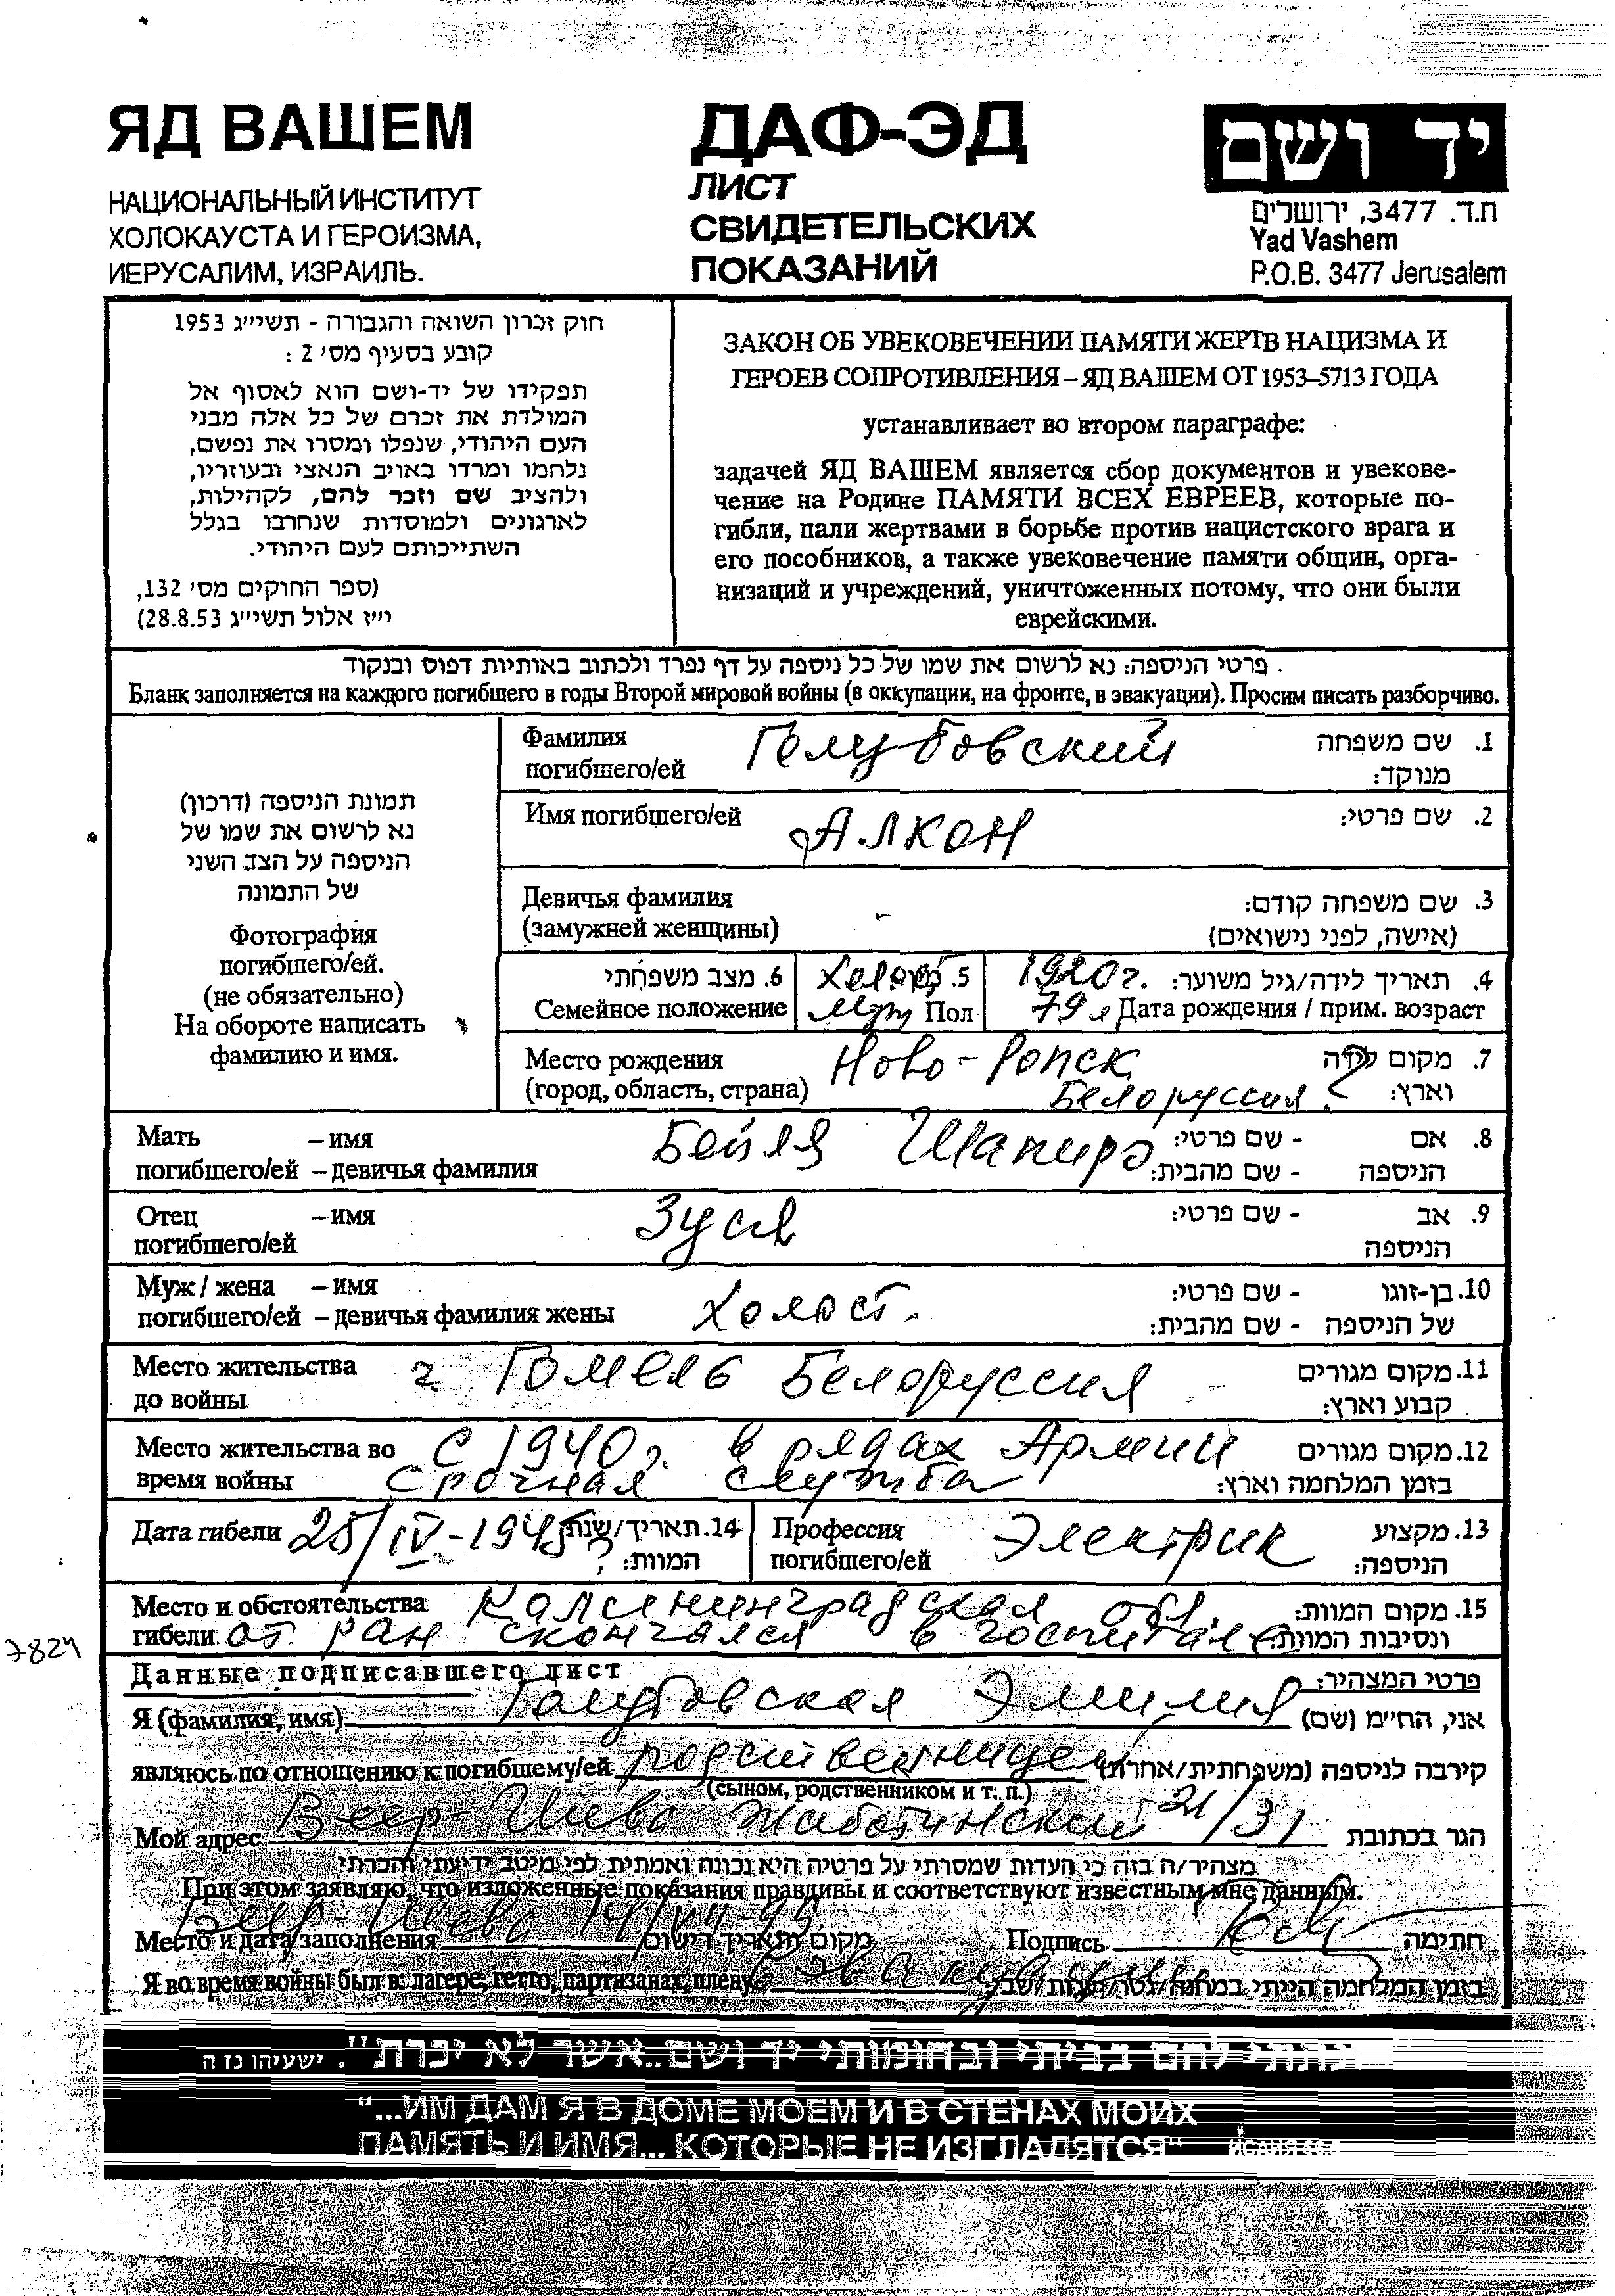 ЯД ВАШЕМ
НАЦИОНАЛЬНЫЙ ИНСТИТУТ
ХОЛОКАУСТА И ГЕРОИЗМА,
ИЕРУСАЛИМ, ИЗРАИЛЬ.
ДАФ-ЭД
ЛИСТ
СВИДЕТЕЛЬСКИХ
ПОКАЗАНИЙ
יד ושם
ת.ד. 3477, ירושלים
Yad Vashem
P.O.B. 3477 Jerusalem
חוק זכרון השואה והגבורה - תשי״ג 1953
קובע בסעיף מס׳ 2 :
תפקידו של יד-ושם הוא לאסוף אל
המולדת את זכרם של כל אלה מבני
העם היהודי, שנפלו ומסרו את נפשם,
נלחמו ומרדו באויב הנאצי ובעוזריו,
ולהציב שם וזכר להם, לקהילות,
לארגונים ולמוסדות שנחרבו בגלל
השתייכותם לעם היהודי.
(ספר החוקים מס׳ 132,
י״ז אלול תשי״ג 28.8.53)
ЗАКОН ОБ УВЕКОВЕЧЕНИИ ПАМЯТИ ЖЕРТВ НАЦИЗМА И
ГЕРОЕВ СОПРОТИВЛЕНИЯ – ЯД ВАШЕМ ОТ 1953–5713 ГОДА
устанавливает во втором параграфе:
задачей ЯД ВАШЕМ является сбор документов и увекове-
чение на Родине ПАМЯТИ ВСЕХ ЕВРЕЕВ, которые по-
гибли, пали жертвами в борьбе против нацистского врага и
его пособников, а также увековечение памяти общин, орга-
низаций и учреждений, уничтоженных потому, что они были
еврейскими.
פרטי הניספה: נא לרשום את שמו של כל ניספה על דף נפרד ולכתוב באותיות דפוס ובנקוד
Бланк заполняется на каждого погибшего в годы Второй мировой войны (в оккупации, на фронте, в эвакуации). Просим писать разборчиво.
תמונת הניספה (דרכון)
נא לרשום את שמו של
הניספה על הצב השני
של התמונה
Фотография
погибшего/ей.
(не обязательно)
На обороте написать
фамилию и имя.
Фамилия Голубовский 1. שם משפחה
погибшего/ей מנוקד:
Имя погибшего/ей Алкон 2. שם פרטי:
Девичья фамилия - 3. שם משפחה קודם:
(замужней женщины) (אישה, לפני נישואים)
6. מצב משפחתי Холост 5. 1920 г. 4. תאריך לידה/גיל משוער:
Семейное положение Муж Пол Дата рождения / прим. возраст
Место рождения Ново-Ропск 7. מקום לידה
(город, область, страна) Белоруссия ? וארץ:
Мать – имя Бейля Шапиро - שם פרטי: 8. אם
погибшего/ей – девичья фамилия - שם מהבית: הניספה
Отец – имя Зуся - שם פרטי: 9. אב
погибшего/ей הניספה
Муж / жена – имя Холост. - שם פרטי: 10. בן-זוגו
погибшего/ей – девичья фамилия жены - שם מהבית: של הניספה
Место жительства г. Гомель Белоруссия 11. מקום מגורים
до войны קבוע וארץ:
Место жительства во С 1940 г. в рядах Армии 12. מקום מגורים
время войны срочная служба בזמן המלחמה וארץ:
Дата гибели 25/IV-1945 14. תאריך/שנת המוות: ?
Профессия Электрик 13. מקצוע
погибшего/ей הניספה:
Место и обстоятельства Калининградская обл. 15. מקום המוות:
гибели от ран скончался в госпитале ונסיבות המוות:
7824
Данные подписавшего лист פרטי המצהיר:
Я (фамилия, имя) Голубовская Эмилия אני, הח״מ (שם)
являюсь по отношению к погибшему/ей родственницей קירבה לניספה (משפחתית/אחרת)
(сыном, родственником и т. п.)
Мой адрес Беер-Шева Жаботинский 21/31 הגר בכתובת
מצהיר/ה בזה כי העדות שמסרתי על פרטיה היא נכונה ואמתית לפי מיטב ידיעתי והכרתי
При этом заявляю, что изложенные показания правдивы и соответствуют известным мне данным.
Место и дата заполнения Беер-Шева מקום ותאריך רישום Подпись חתימה
Я во время войны был в: лагере, гетто, партизанах, плену בזמן המלחמה הייתי במחנה/גטו/יערות/שבי
ונתתי להם בביתי ובחומותי יד ושם..אשר לא יכרת״. ישעיהו נז ה
“...ИМ ДАМ Я В ДОМЕ МОЕМ И В СТЕНАХ МОИХ
ПАМЯТЬ И ИМЯ... КОТОРЫЕ НЕ ИЗГЛАДЯТСЯ“